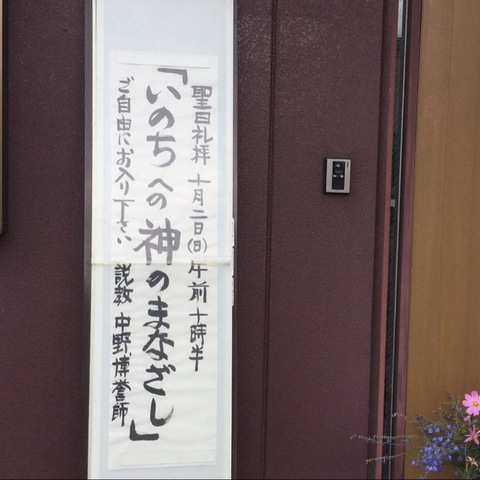 聖日礼拝 十月二日(日)午前十時半
「いのちへの神のまなざし」
ご自由にお入り下さい 説教 中野博誉師